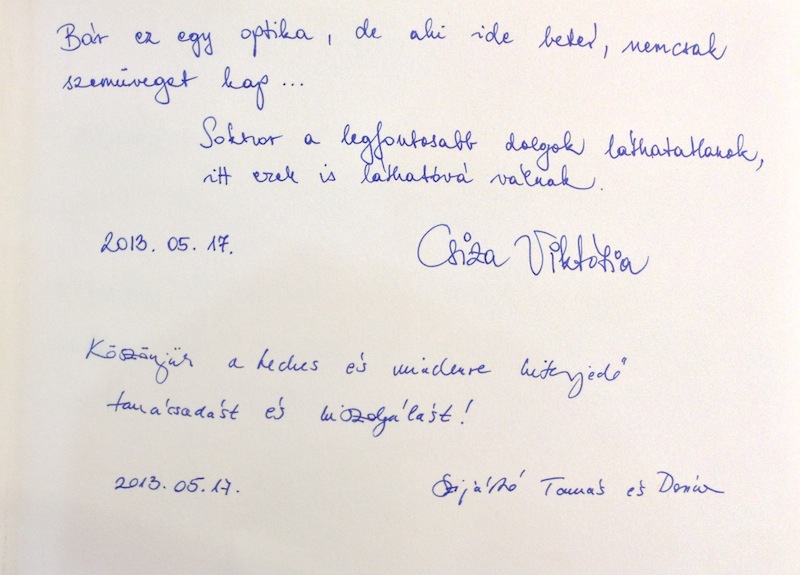 Bár ez egy optika, de aki ide betér, nemcsak
szemüveget kap...
Sokszor a legfontosabb dolgok láthatatlanok,
itt ezek is láthatóvá válnak.
2013. 05. 17.
Csiza Viktória
Köszönjük a kedves és mindenre kiterjedő
tanácsadást és kiszolgálást!
2013. 05. 17.
Tamás és